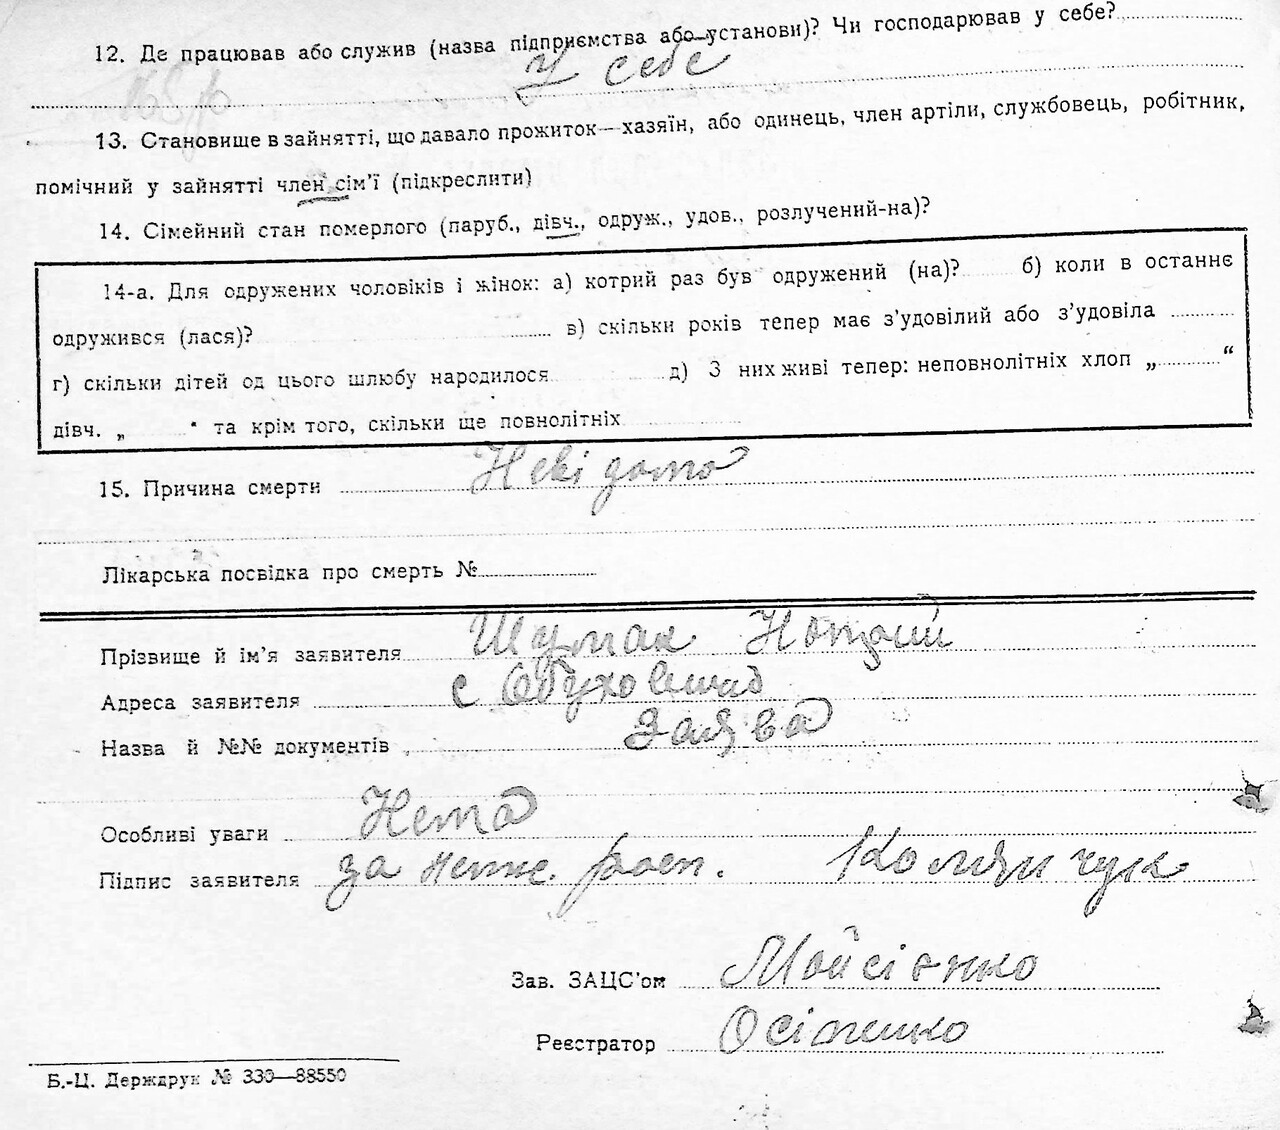 12. Де працював або служив (назва підприємства або установи)? Чи господарював у себе?
У себе
13. Становище в зайнятті, що давало прожиток—хазяїн, або одинець, член артіли, службовець, робітник,
помічний у зайнятті член сім'ї (підкреслити)
14. Сімейний стан померлого (паруб., дівч., одруж., удов., розлучений-на)?
14-а. Для одружених чоловіків і жінок: а) котрий раз був одружений (на)? б) коли в останнє
одружився (лася)? в) скільки років тепер має з'удовілий або з'удовіла
г) скільки дітей од цього шлюбу народилося д) З них живі тепер: неповнолітніх хлоп „ “
дівч. „ “ та крім того, скільки ще повнолітніх
15. Причина смерти Невідома
Лікарська посвідка про смерть №
Прізвище й ім'я заявителя Шумак
Адреса заявителя с
Назва й №№ документів Заява
Особливі уваги Нема
Підпис заявителя за роsп.
Зав. ЗАЦС'ом Мойсієнко
Реєстратор Осіпенко
Б.-Ц. Держдрук № 330—88550